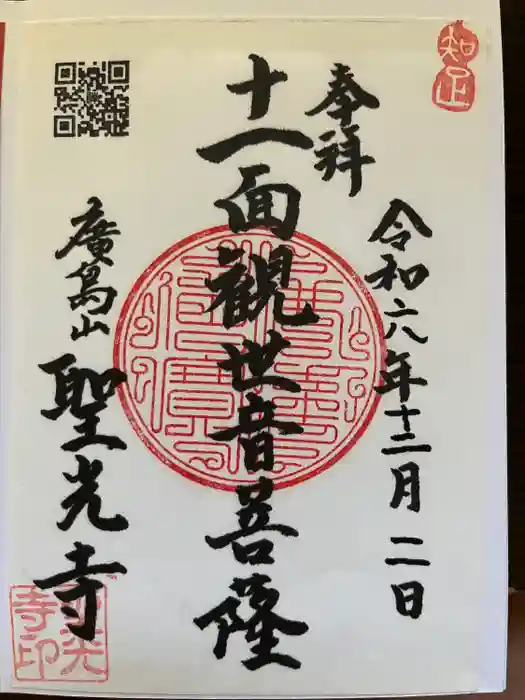 知足
奉拝
令和六年十二月二日
十一面観世音菩薩
廣島山
聖光寺